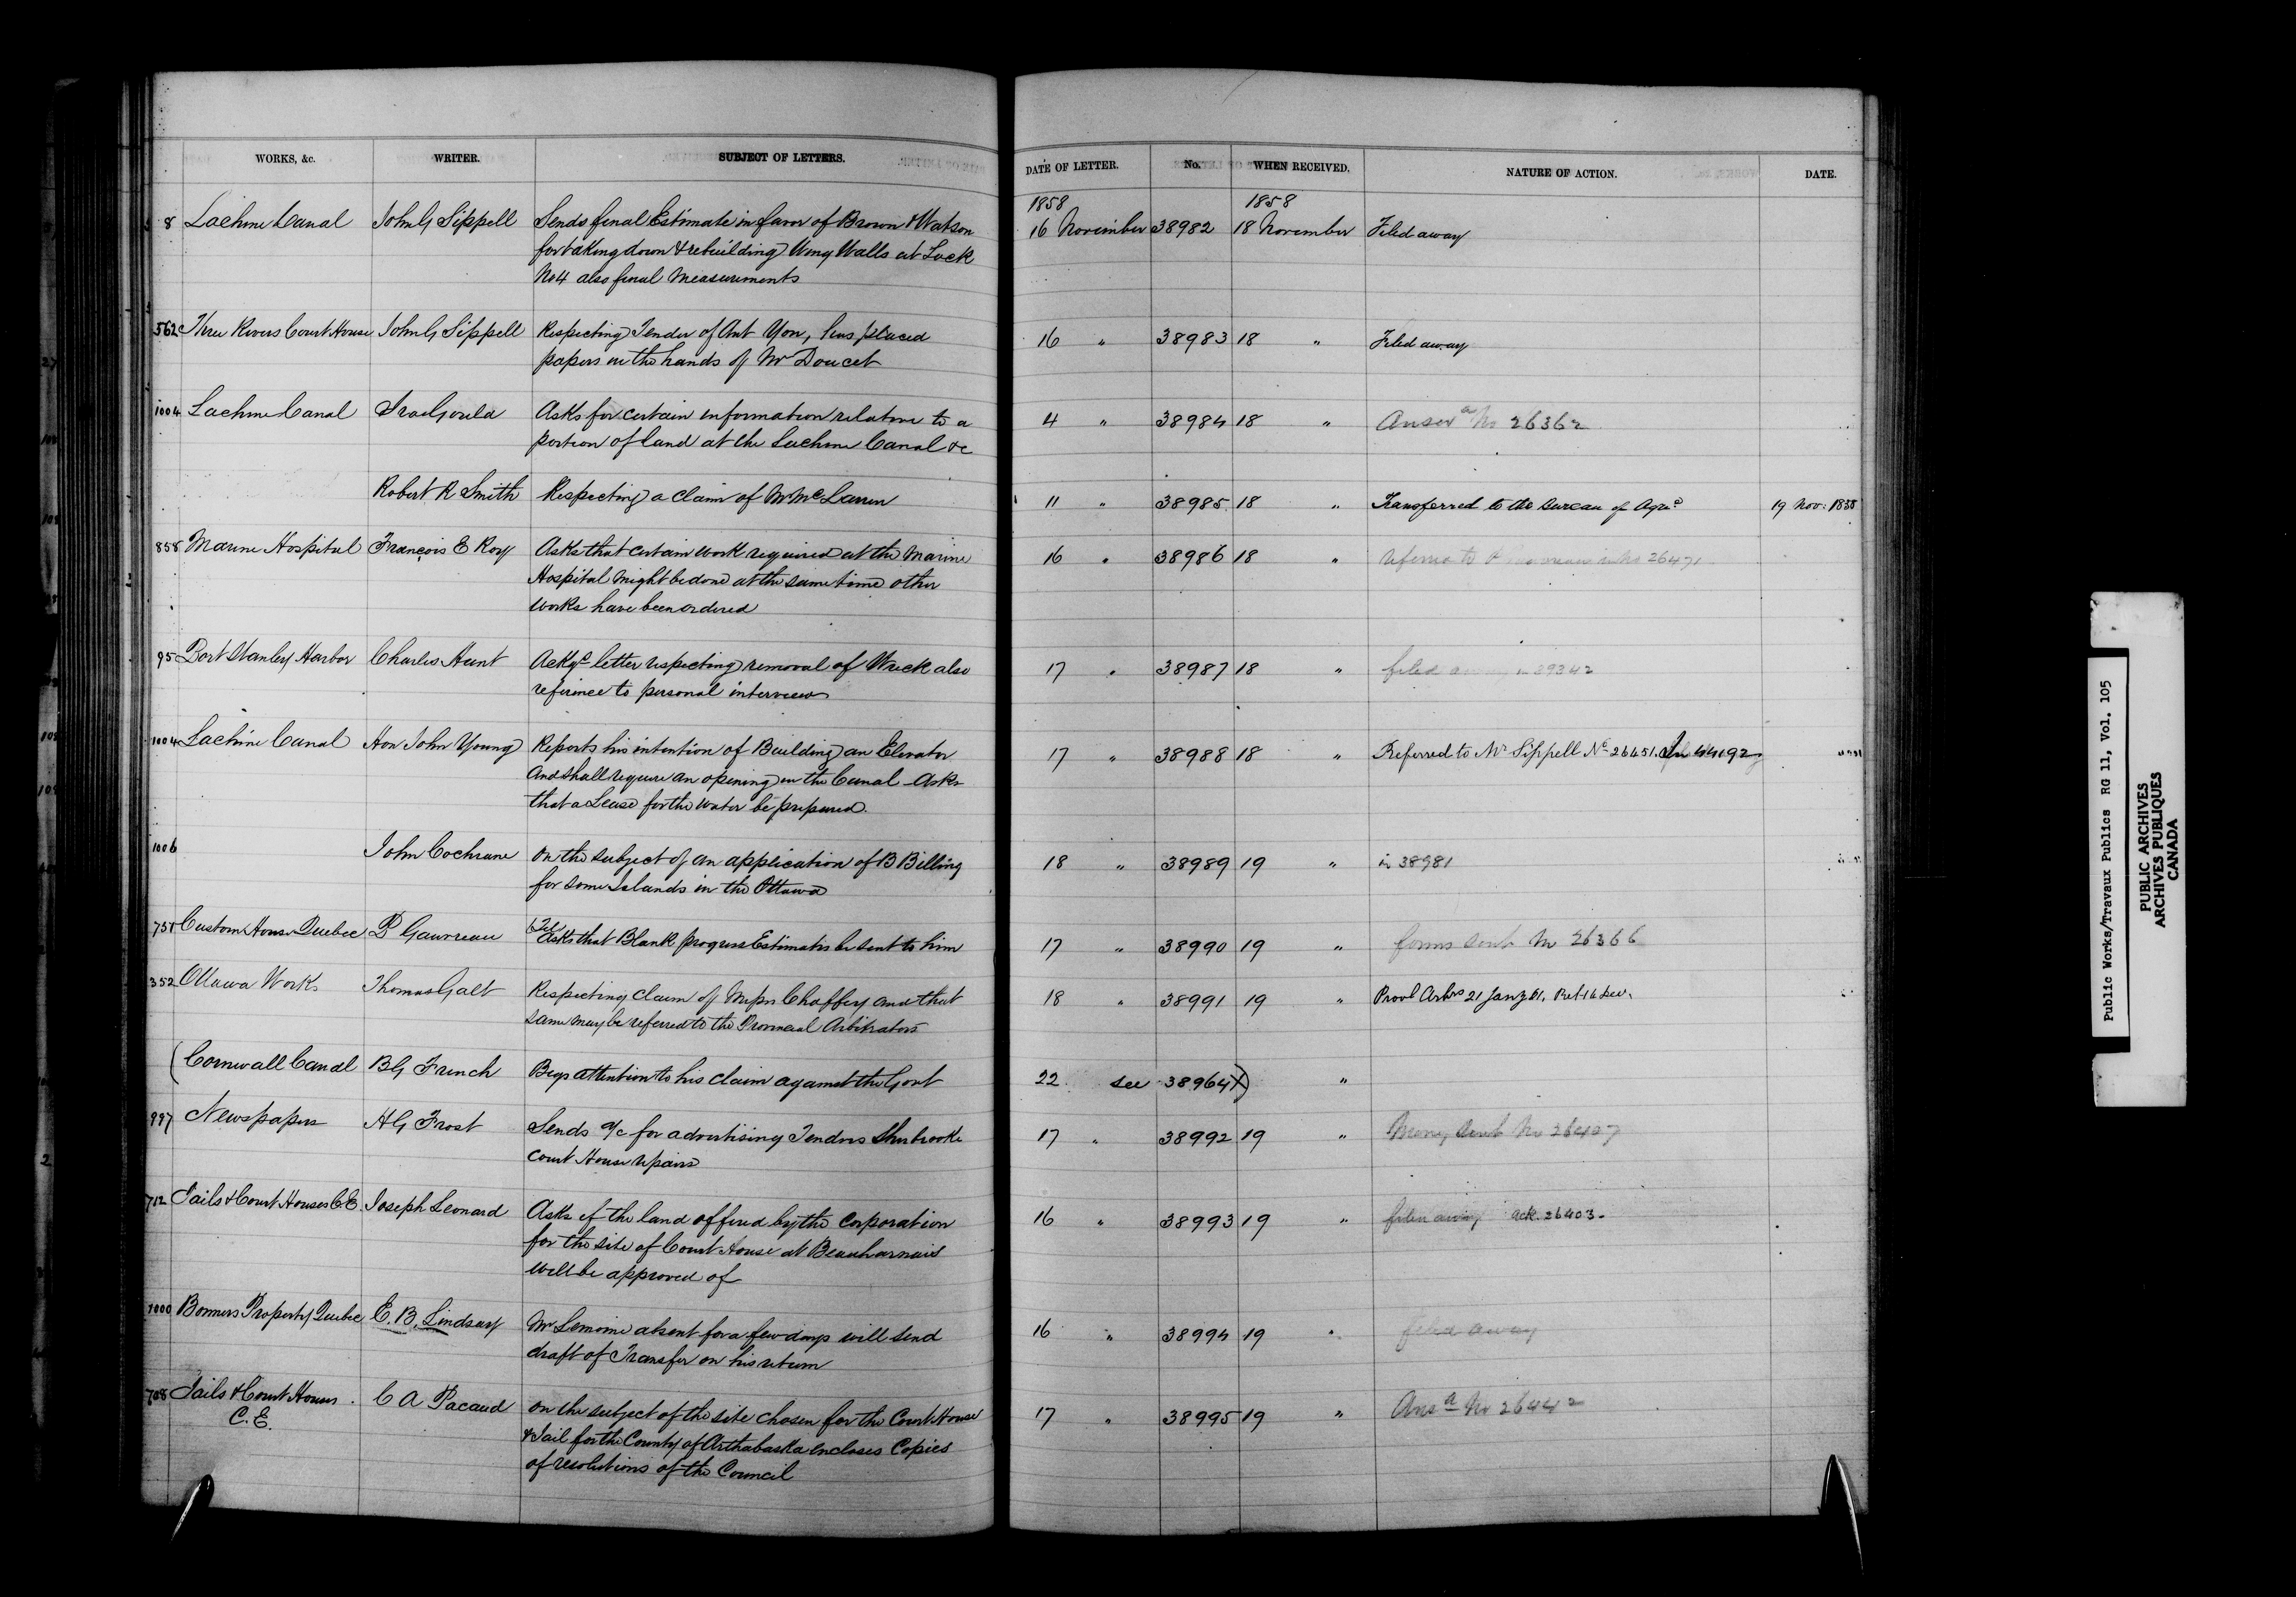 WORKS, &c. WRITER. SUBJECT OF LETTERS. DATE OF LETTER. No. WHEN RECEIVED. NATURE OF ACTION. DATE.
1858 1858
8 Lachine Canal John G Sippell Sends final Estimate in favor of Brown & Watson 16 November 38982 18 November Filed away
for taking down & rebuilding Wing Walls at Lock
No 4 also final Measurements
562 Three Rivers Court House John G Sippell Respecting Tender of Ant Yon, has placed 16 " 38983 18 " Filed away
papers in the hands of Mr Doucet
1004 Lachine Canal Ira Gould Asks for certain information relative to a 4 " 38984 18 " Answd No 26362
portion of land at the Lachine Canal &c
Robert R Smith Respecting a claim of Mr McLaren 11 " 38985 18 " Transferred to the Bureau of Agre 19 Nov: 1858
858 Marine Hospital François E Roy Asks that certain work required at the Marine 16 " 38986 18 " referred to 26471
Hospital might be done at the same time other
works have been ordered
95 Port Stanley Harbor Charles Hunt Ackgs letter respecting removal of Wreck also 17 " 38987 18 " filed away in 39342
reference to personal interview
1004 Lachine Canal Hon John Young Reports his intention of Building an Elevator 17 " 38988 18 " Referred to Mr Sippell No 26451.
And shall require an opening in the Canal Asks
that a Lease for the water be prepared.
1006 John Cochrane On the subject of an application of B Billing 18 " 38989 19 " in 38981
for some Islands in the Ottawa
Custom House Quebec P Gauvreau (Tel) Asks that Blank progress Estimates be sent to him 17 " 38990 19 " forms sent No 26366
352 Ottawa Works Thomas Galt Respecting claim of Messrs Chaffey and that 18 " 38991 19 " Provl Arbrs 21 Jany 61.
same may be referred to the Provincial Arbitrators
(Cornwall Canal BG French Begs attention to his claim against the Govt 22 see 38964X) "
997 Newspapers HG Frost Sends a/c for advertising Tenders Sherbrooke 17 " 38992 19 " Money Sent No 26407
Court House repairs
712 Jails & Court Houses C.E. Joseph Leonard Asks if the land offered by the Corporation 16 " 38993 19 " filed away ack. 26403.
for the site of Court House at Beauharnais
Will be approved of
1000 Bonners Property Quebec E. B. Lindsay Mr Lemoine absent for a few days will send 16 " 38994 19 " filed away
draft of Transfer on his return
708 Jails & Court Houses C A Pacaud On the subject of the site chosen for the Court House 17 " 38995 19 " Ansd No 26442
C.E. & Jail for the County of Arthabaska encloses Copies
of resolutions of the Council
Public Works/Travaux Publics RG 11, Vol. 105
PUBLIC ARCHIVES
ARCHIVES PUBLIQUES
CANADA